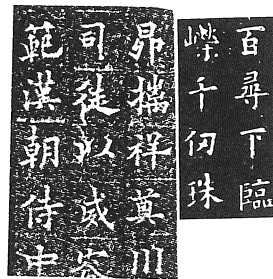 百尋下臨
嶸千仞珠
昴攜祥奠川
司徒以威容
範漢朝侍中